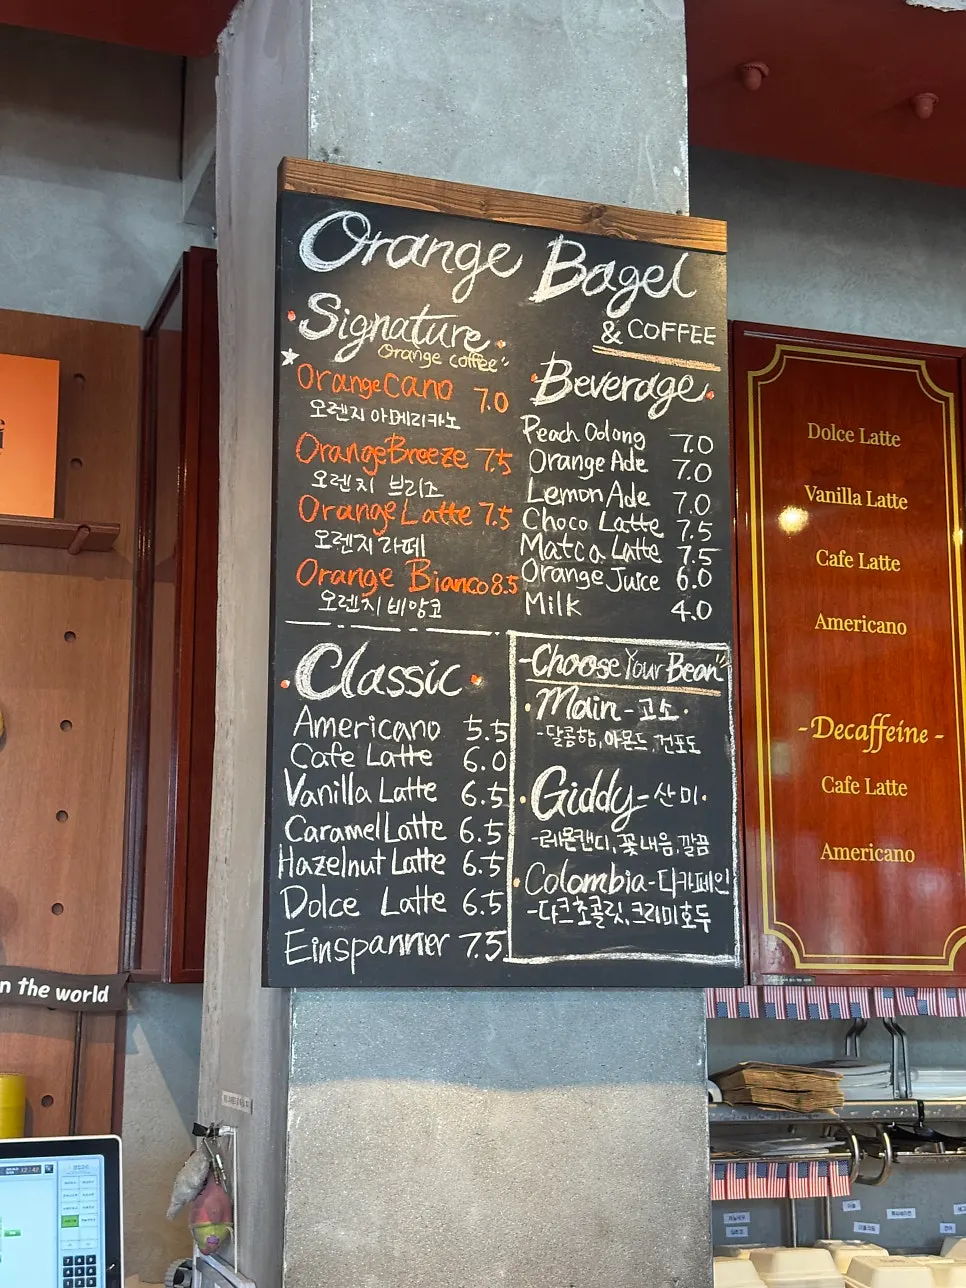 Orange Bagel
& COFFEE
Signature
Orange coffee"
OrangeCano 7.0
오렌지 아메리카노
OrangeBreeze 7.5
오렌지 브리즈
Orange Latte 7.5
오렌지 라떼
Orange Bianco 8.5
오렌지 비앙코
Beverage
Peach Oolong 7.0
Orange Ade 7.0
Lemon Ade 7.0
Choco Latte 7.5
Matca Latte 7.5
Orange Juice 6.0
Milk 4.0
Classic
Americano 5.5
Cafe Latte 6.0
Vanilla Latte 6.5
Caramel Latte 6.5
Hazelnut Latte 6.5
Dolce Latte 6.5
Einspanner 7.5
-Choose Your Bean"
·Main-고소·
-달콤함,아몬드,건포도
·Giddy-산미·
-레몬캔디,꽃내음,깔끔
·Colombia-디카페인
-다크초콜릿,크리미호두
Dolce Latte
Vanilla Latte
Cafe Latte
Americano
-Decaffeine-
Cafe Latte
Americano
n the world